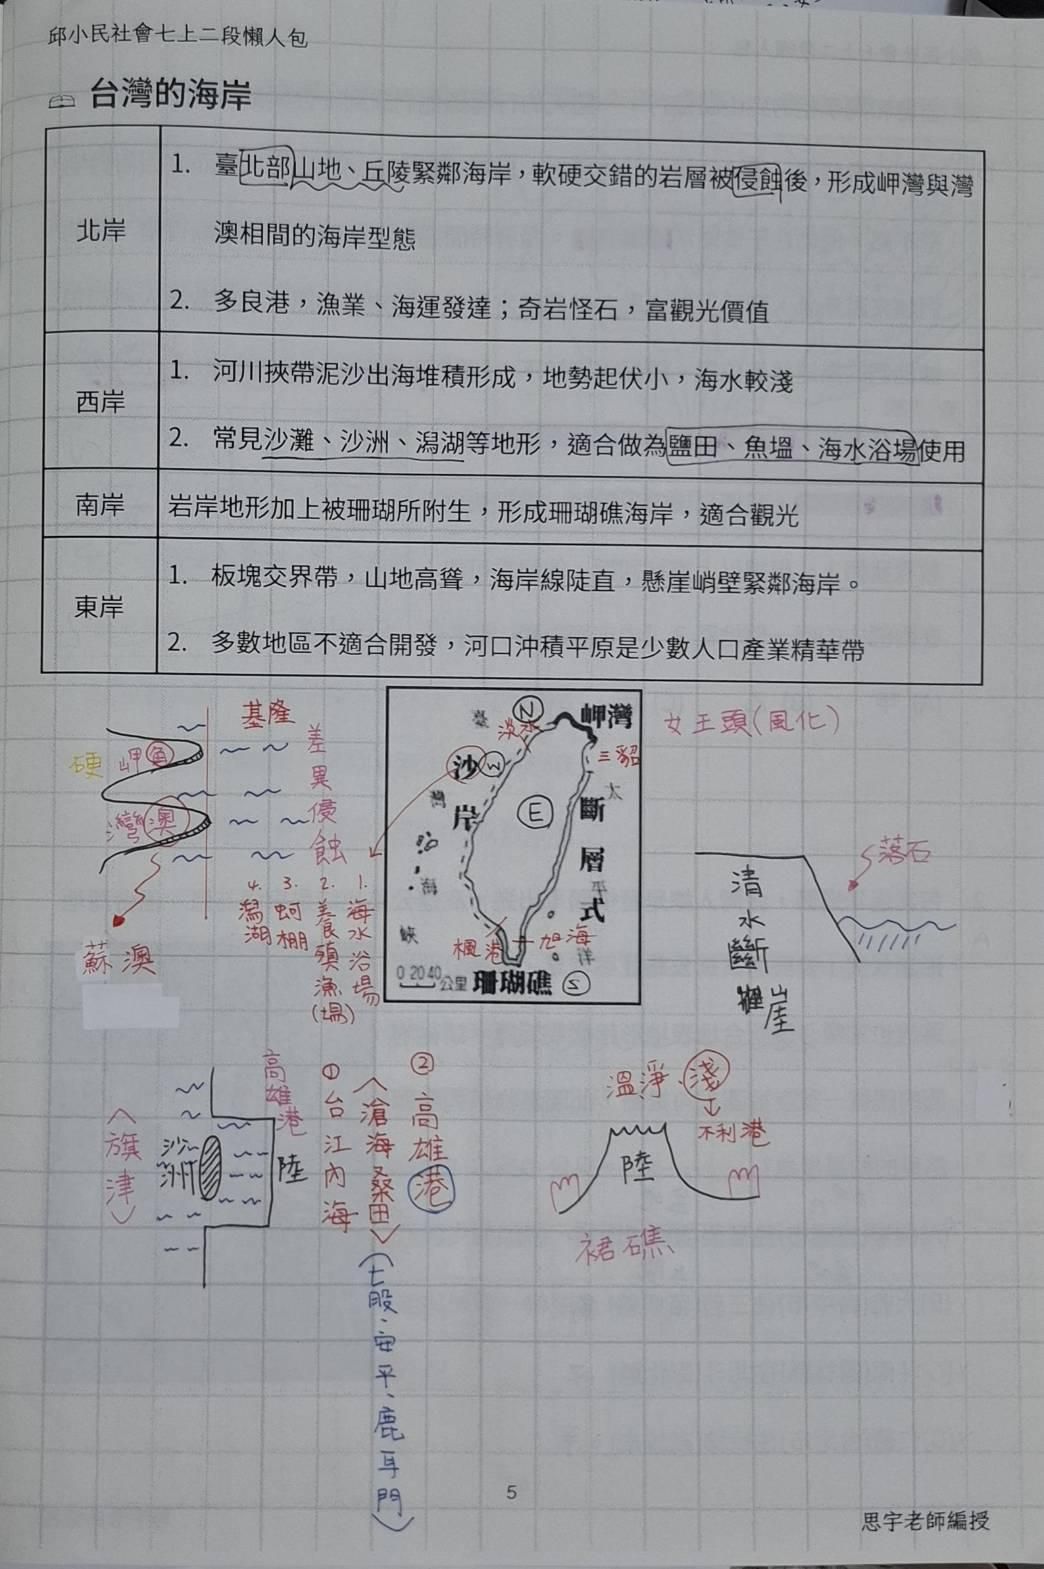 邱小民社會七上二段懶人包
台灣的海岸
北岸
1. 臺北部山地、丘陵緊鄰海岸，軟硬交錯的岩層被侵蝕後，形成岬灣與灣
澳相間的海岸型態
2. 多良港，漁業、海運發達；奇岩怪石，富觀光價值
西岸
1. 河川挾帶泥沙出海堆積形成，地勢起伏小，海水較淺
2. 常見沙灘、沙洲、潟湖等地形，適合做為鹽田、魚塭、海水浴場使用
南岸
岩岸地形加上被珊瑚所附生，形成珊瑚礁海岸，適合觀光
東岸
1. 板塊交界帶，山地高聳，海岸線陡直，懸崖峭壁緊鄰海岸。
2. 多數地區不適合開發，河口沖積平原是少數人口產業精華帶
基隆
硬
岬角
灣澳
蘇澳
差異侵蝕
1. 海水浴場
2. 養殖漁(塭)
3. 蚵棚
4. 潟湖
N
岬灣
臺灣海峽
淡水
三貂
沙岸
W
E
斷層式
太平洋
楓港
旭海
0 20 40公里
珊瑚礁
S
女王頭(風化)
落石
清水斷崖
高雄港
<旗津>
沙洲
陸
①台江內海
<滄海桑田>
(七股、安平、鹿耳門)
②高雄港
溫、淨、淺
不利港
陸
裙礁
5
思宇老師編授